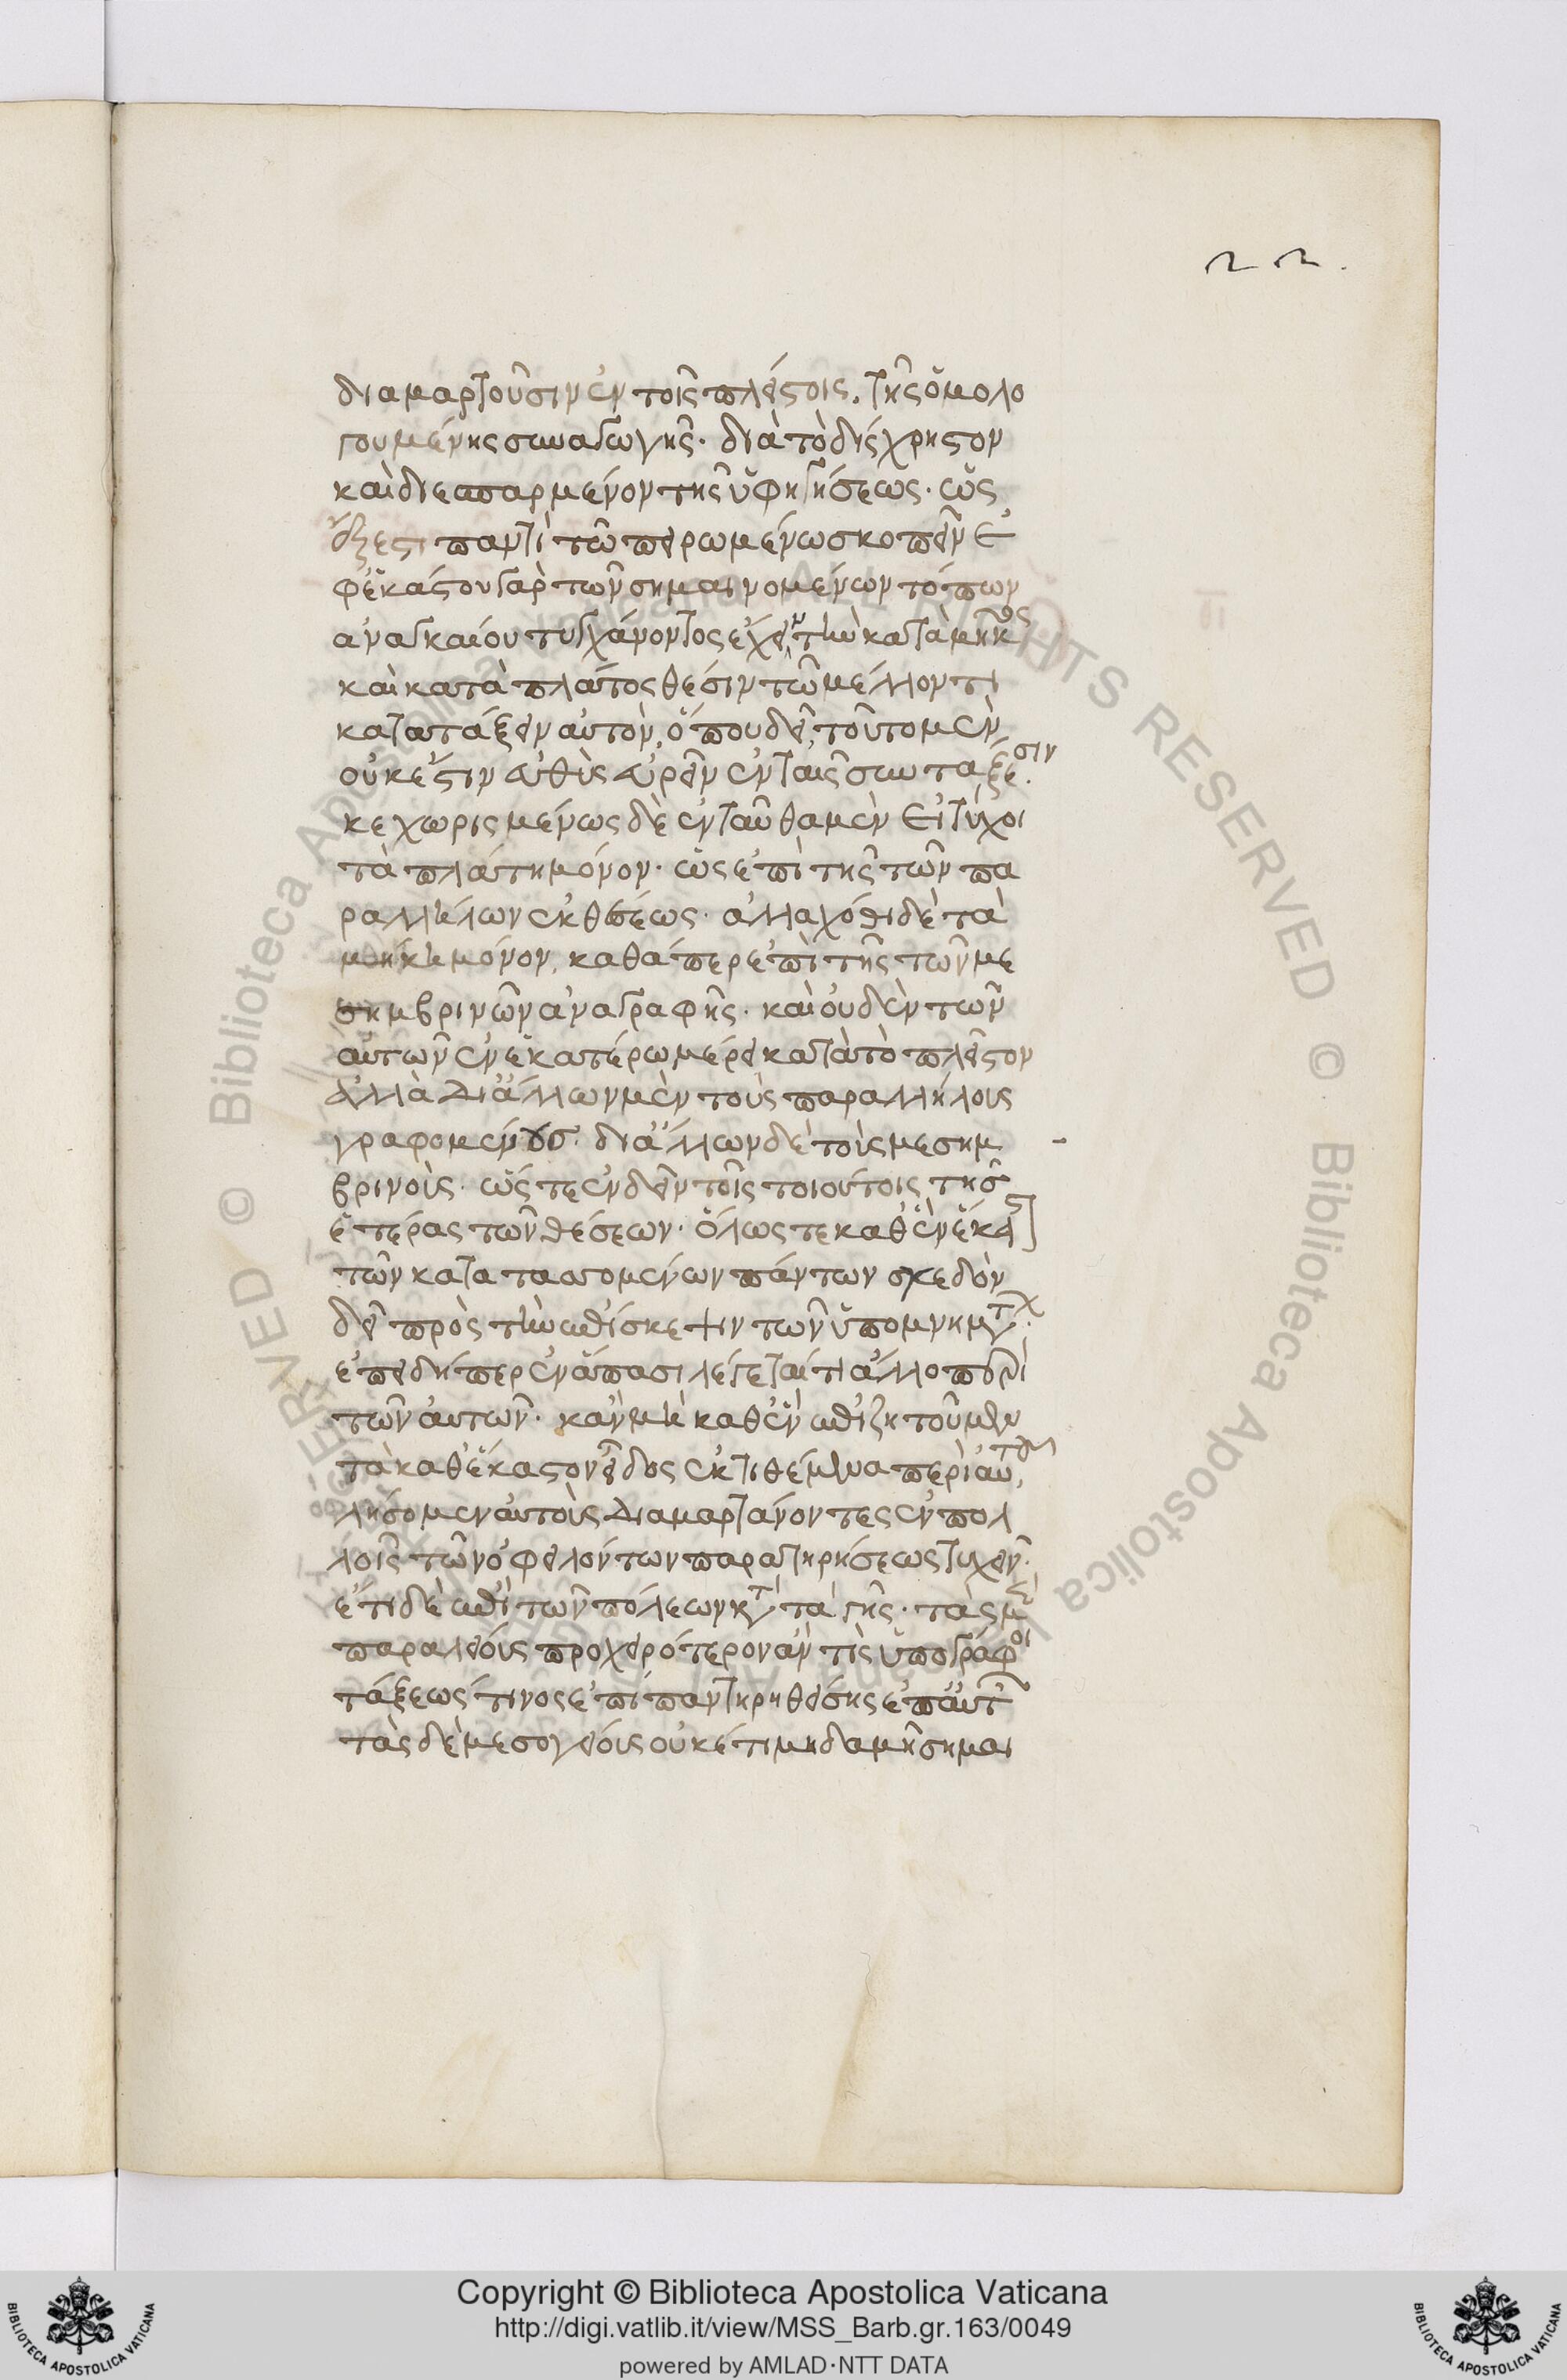 22.
διαμαρτοῦσιν ἐν τοῖς πλείστοις, τῆς ὁμολο
γουμένης συναγωγῆς· διὰ τὸ δύσχρηστον
καὶ διεσπαρμένον τῆς ὑφηγήσεως· ὡς
ἔξεστι παντὶ τῶ πειρωμένω σκοπεῖν ἐ
φ' ἑκάστου γὰρ τῶν σημαινομένων τόπων
ἀναγκαίου τυγχάνοντος ἔχειν τὴν κατὰ μῆκος
καὶ κατὰ πλάτος θέσιν τῶ μέλλοντι
κατατάξειν αὐτὸν, ὅπου δεῖ, τοῦτο μὲν
οὐκ ἔστιν εὐθὺς εὑρεῖν ἐν ταῖς συντάξεσιν.
κεχωρισμένως δὲ ἐνταῦθα μὲν εἰ τύχοι
τὰ πλάτη μόνον· ὡς ἐπὶ τῆς τῶν πα
ραλλήλων ἐκθέσεως· ἀλλαχόθι δὲ τὰ
μήκη μόνον, καθάπερ ἐπὶ τῆς τῶν με
σημβρινῶν ἀναγραφῆς· καὶ οὐδὲν τῶν
αὐτῶν ἐν ἑκατέρω μέρει κατὰ τὸ πλεῖστον
ἀλλὰ δι' ἄλλων μὲν τοὺς παραλλήλους
γραφομένους. δι' ἄλλων δὲ τοὺς μεσημ
βρινοὺς. ὥς τε ἐνδεῖν τοῖς τοιούτοις τῆς
ἑτέρας τῶν θέσεων· ὅλως τε καθ' ἓν ἕκαστ
τῶν κατατασσομένων πάντων σχεδὸν
δεῖ πρὸς τὴν ἐπίσκεψιν τῶν ὑπομνημάτων.
ἐπειδήπερ ἐν ἅπασι λέγεταί τι ἄλλο περὶ
τῶν αὐτῶν· κἂν μὴ καθ' ἓν ἐπιζητοῦμεν
τὰ καθ' ἕκαστον εἶδος ἐκτιθέμενα περὶ αὐτῶν,
λήσομεν αὐτοὺς διαμαρτάνοντες ἐν πολ
λοῖς τῶν ὀφειλόντων παρατηρήσεως τυχεῖν.
ἔτι δὲ ἐπὶ τῶν πόλεων κατάταγῆς· τὰς μὲν
παραλίους προχειρότερον ἄν τις ὑπογράφοι
τάξεως τινος ἐπιπαντηρηθείσης ἐπ' αὐτ
τὰς δὲ μεσογείους οὐκέτι μηδαμῆ σημαι
Copyright © Biblioteca Apostolica Vaticana
http://digi.vatlib.it/view/MSS_Barb.gr.163/0049
powered by AMLAD·NTT DATA